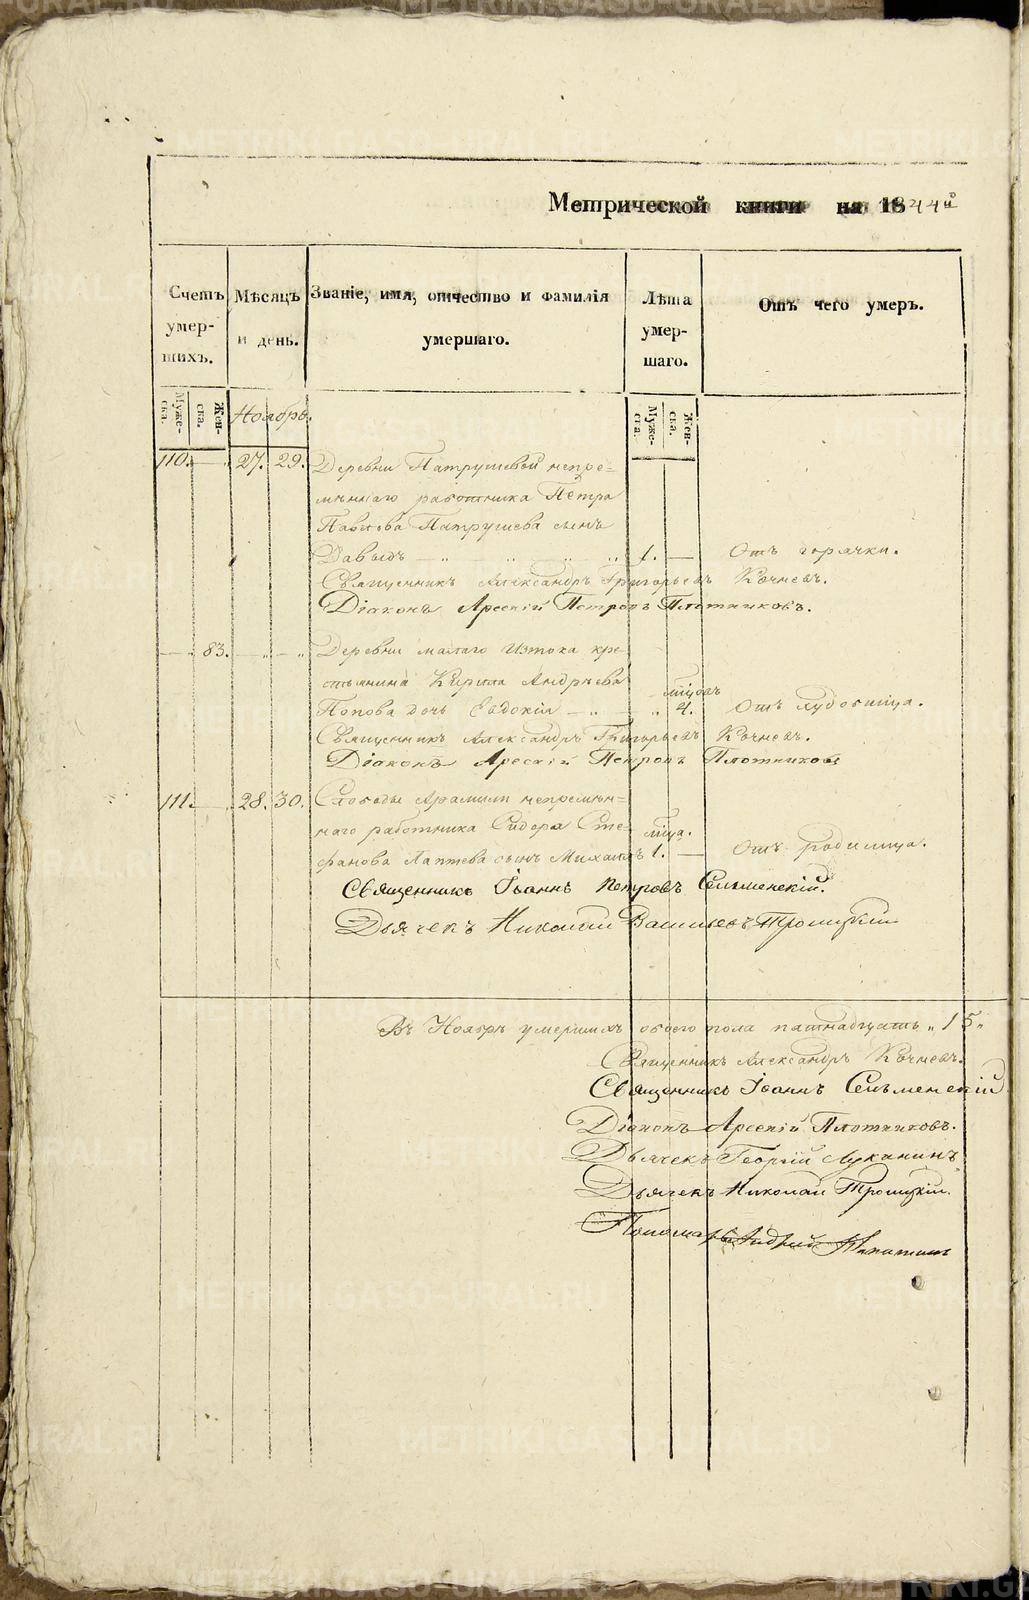 Метрической книги на 1844й
Счетъ умер-шихъ.
Мѣсяцъ и день.
Званіе, имя, отчество и фамилія умершаго.
Лѣта умер-шаго.
Отъ чего умеръ.
Муже-ска.
Жен-ска.
Ноябрь.
Муже-ска.
Жен-ска.
110. — 27. 29. Деревни Патрушевой непре=
мѣннаго работника Петра
Павлова Патрушева сынъ
Давыдъ — 1. — Отъ горячки.
Священникъ Александръ Григорьевъ Кочневъ.
Діаконъ Арсеній Петровъ Плотниковъ.
— 83. — „ — „ Деревни малаго Изтока кре
стьянина Кирила Андрѣева
мѣцовъ
Попова дочь Евдокія — „ — „ 4. Отъ худобища.
Священникъ Александръ Григорьевъ Кочневъ.
Діаконъ Арсеній Петровъ Плотниковъ
111. — 28. 30. Слободы Арамили непремѣн=
наго работника Сидора Сте= мѣца.
фанова Лаптева сынъ Михаилъ 1. — Отъ родимца.
Священникъ Іоаннъ Петровъ Сельменскій.
Дьячекъ Николай Васильевъ Троицкій
Въ Ноябрѣ умершихъ обоего пола пятнадцать „15„
Священникъ Александръ Кочневъ.
Священникъ Іоаннъ Сельменскій
Діаконъ Арсеній Плотниковъ.
Дьячекъ Георгій Луканинъ
Дьячекъ Николай Троицкій.
Пономарь
METRIKI.GASO-URAL.RU